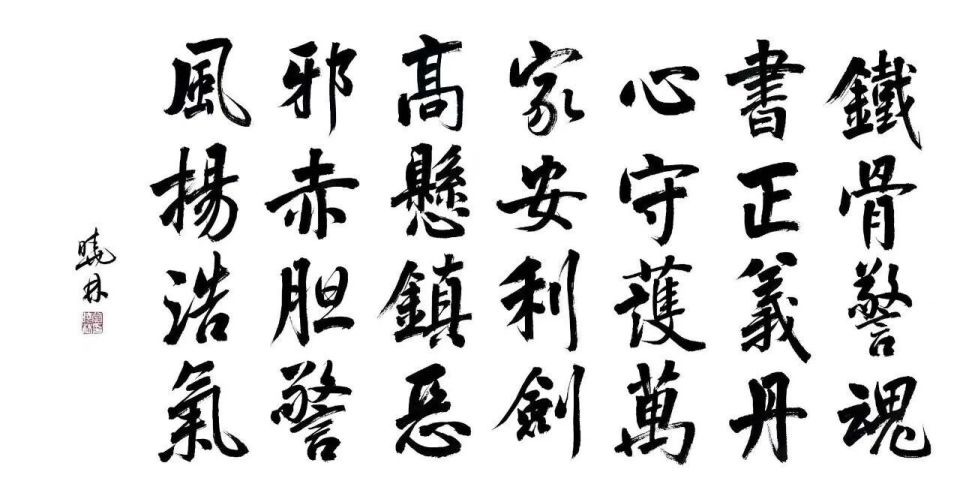 鐵骨警魂
書正義丹
心守護萬
家安利劍
高懸鎮惡
邪赤胆警
風揚浩氣
曉林